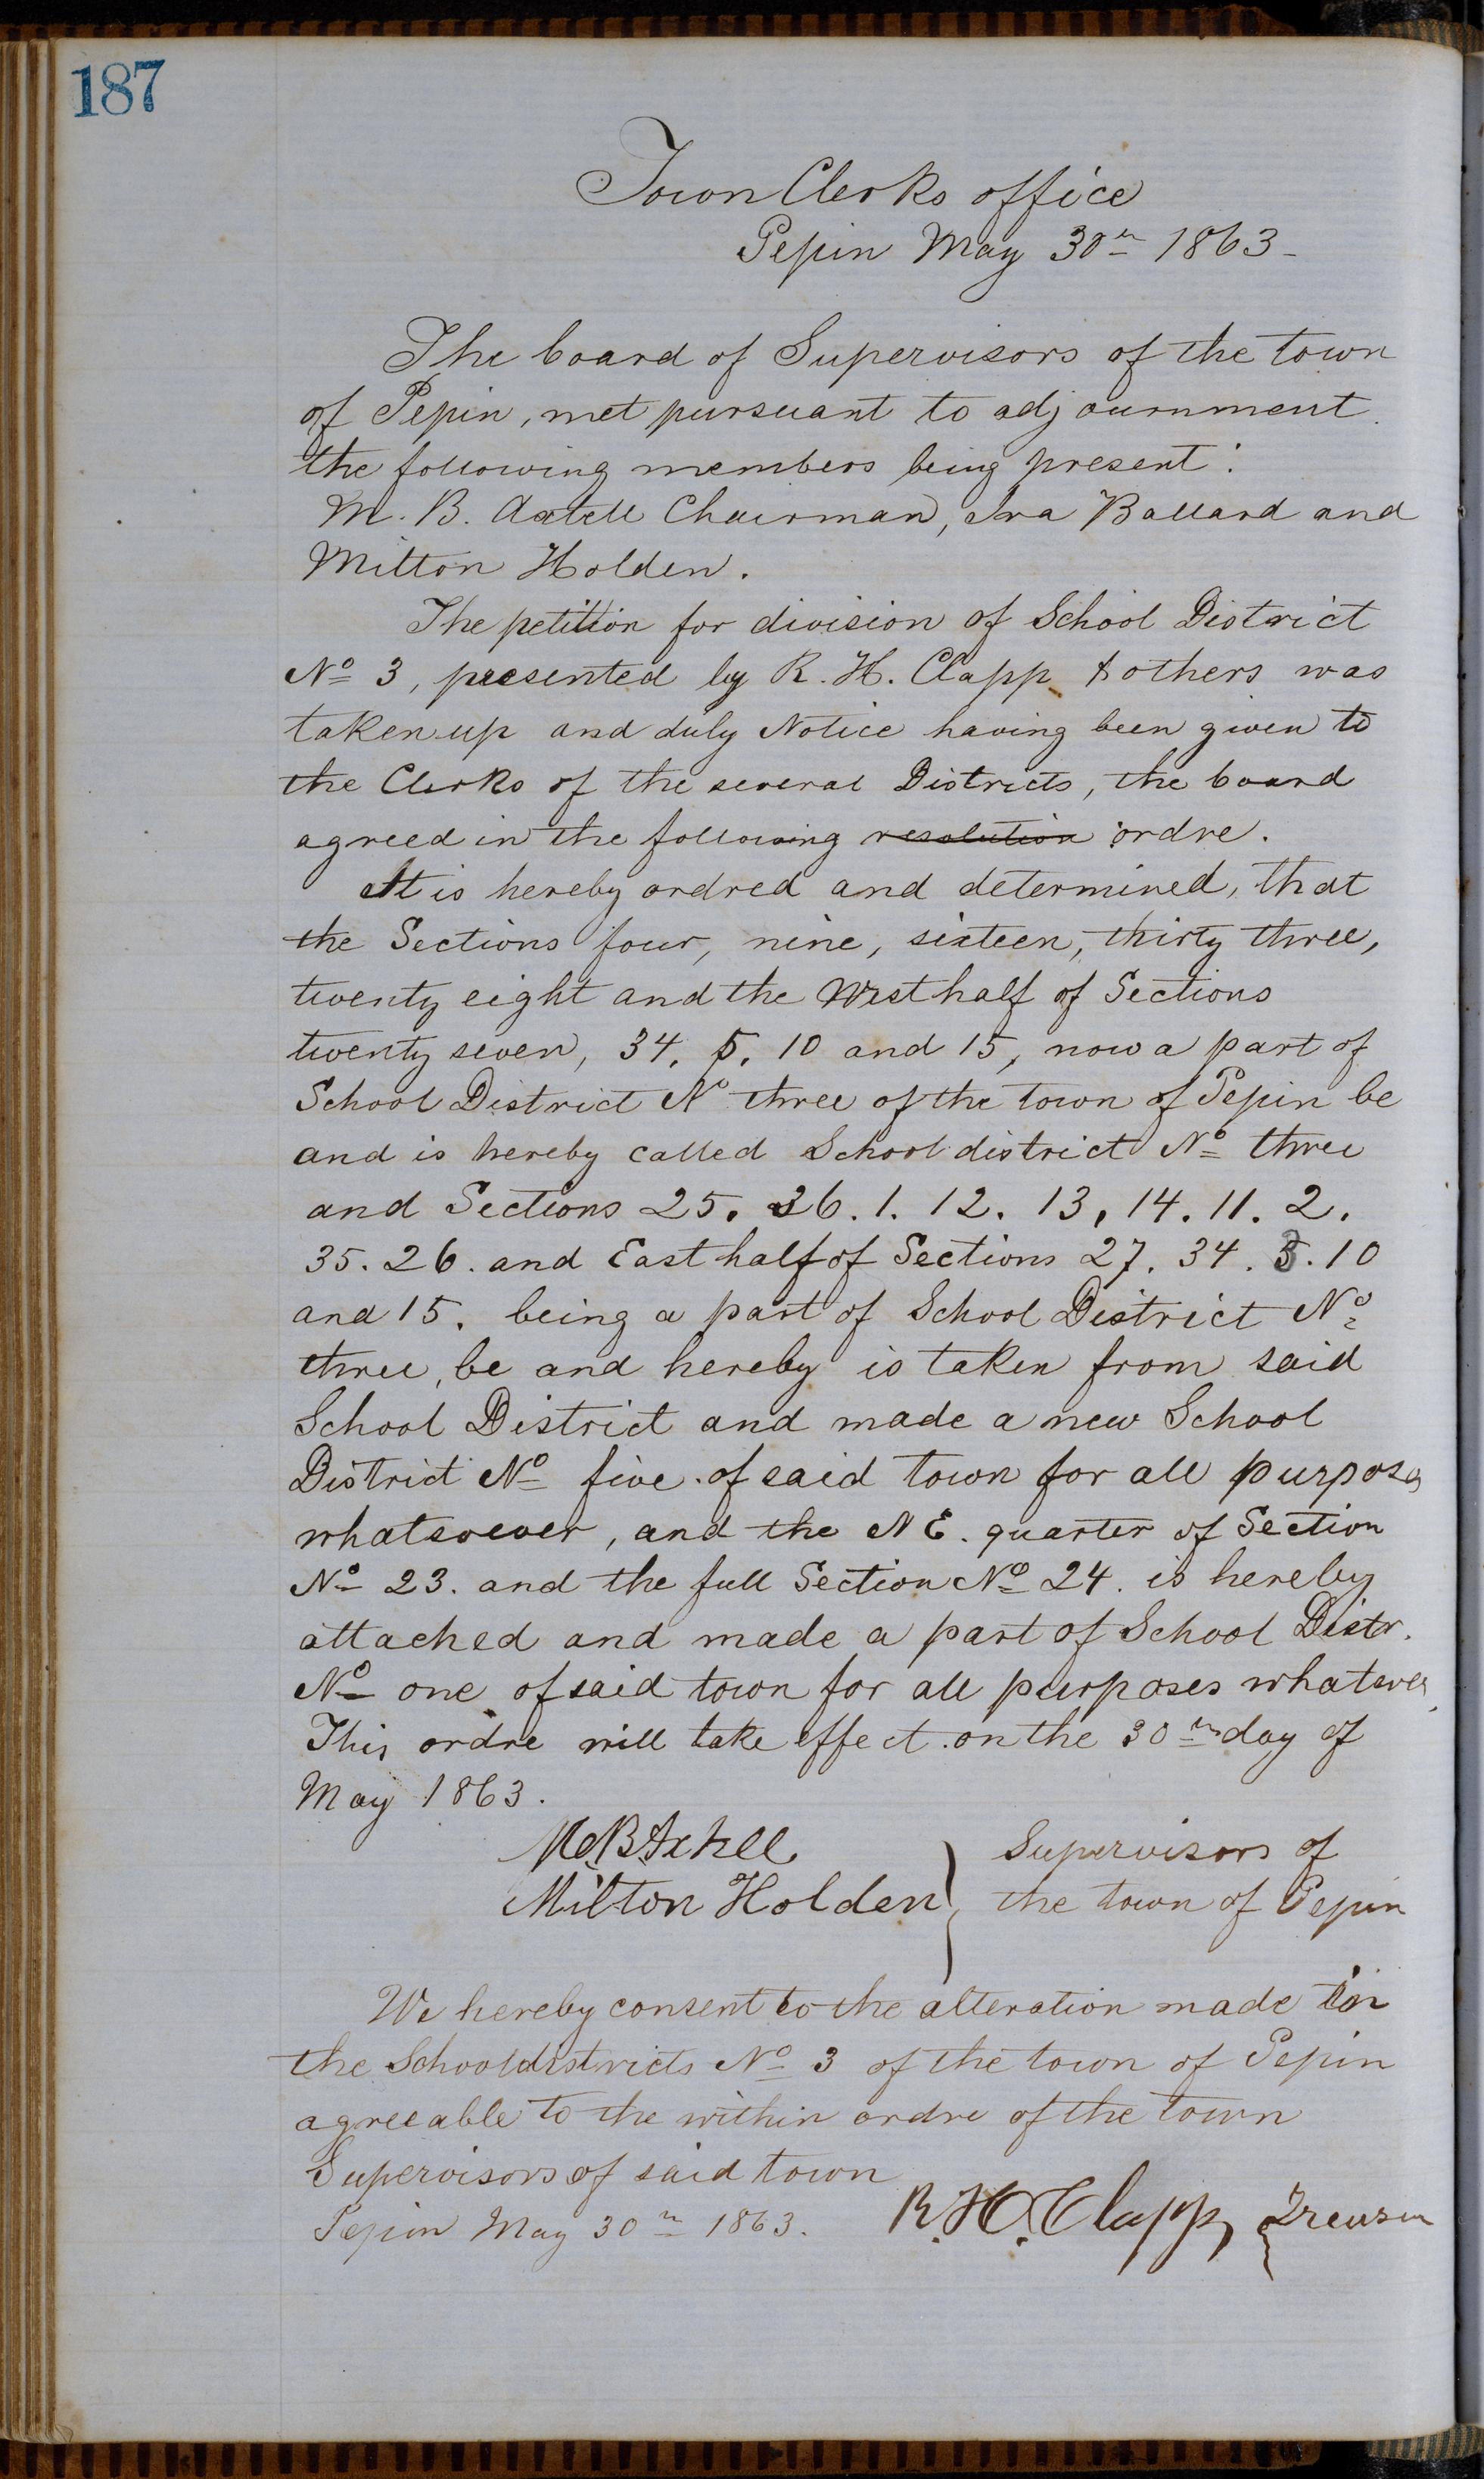 187
Town Clerks office
Pepin May 30th 1863 -
The board of Supervisors of the town
of Pepin, met pursuant to adjournment
the following members being present:
M. B. Axtell Chairman, Ira Ballard and
Milton Holden.
The petition for division of School District
No 3, presented by R. H. Clapp & others was
taken up and duly Notice having been given to
the Clerks of the several Districts, the board
agreed in the following resolution ordre.
It is hereby ordred and determined, that
the Sections four, nine, sixteen, thirty three,
twenty eight and the West half of Sections
twenty seven, 34. 5. 10 and 15, now a part of
School District No three of the town of Pepin be
and is hereby called School district No three
and Sections 25. 36. 1. 12. 13, 14. 11. 2.
35. 26. and East half of Sections 27. 34. 3. 10
and 15. being a part of School District No
three, be and hereby is taken from said
School District and made a new School
District No five of said town for all purposes
whatsoever, and the N E. quarter of Section
No 23. and the full Section No 24. is hereby
attached and made a part of School Distr.
No one of said town for all purposes whatever
This ordre will take effect on the 30th day of
May 1863.
M. B. Axtell
Supervisors of
Milton Holden } the town of Pepin
We hereby consent to the alteration made in
the Schooldistricts No 3 of the town of Pepin
agreeable to the within ordre of the town
Supervisors of said town
Pepin May 30th 1863. R. H. Clapp, }